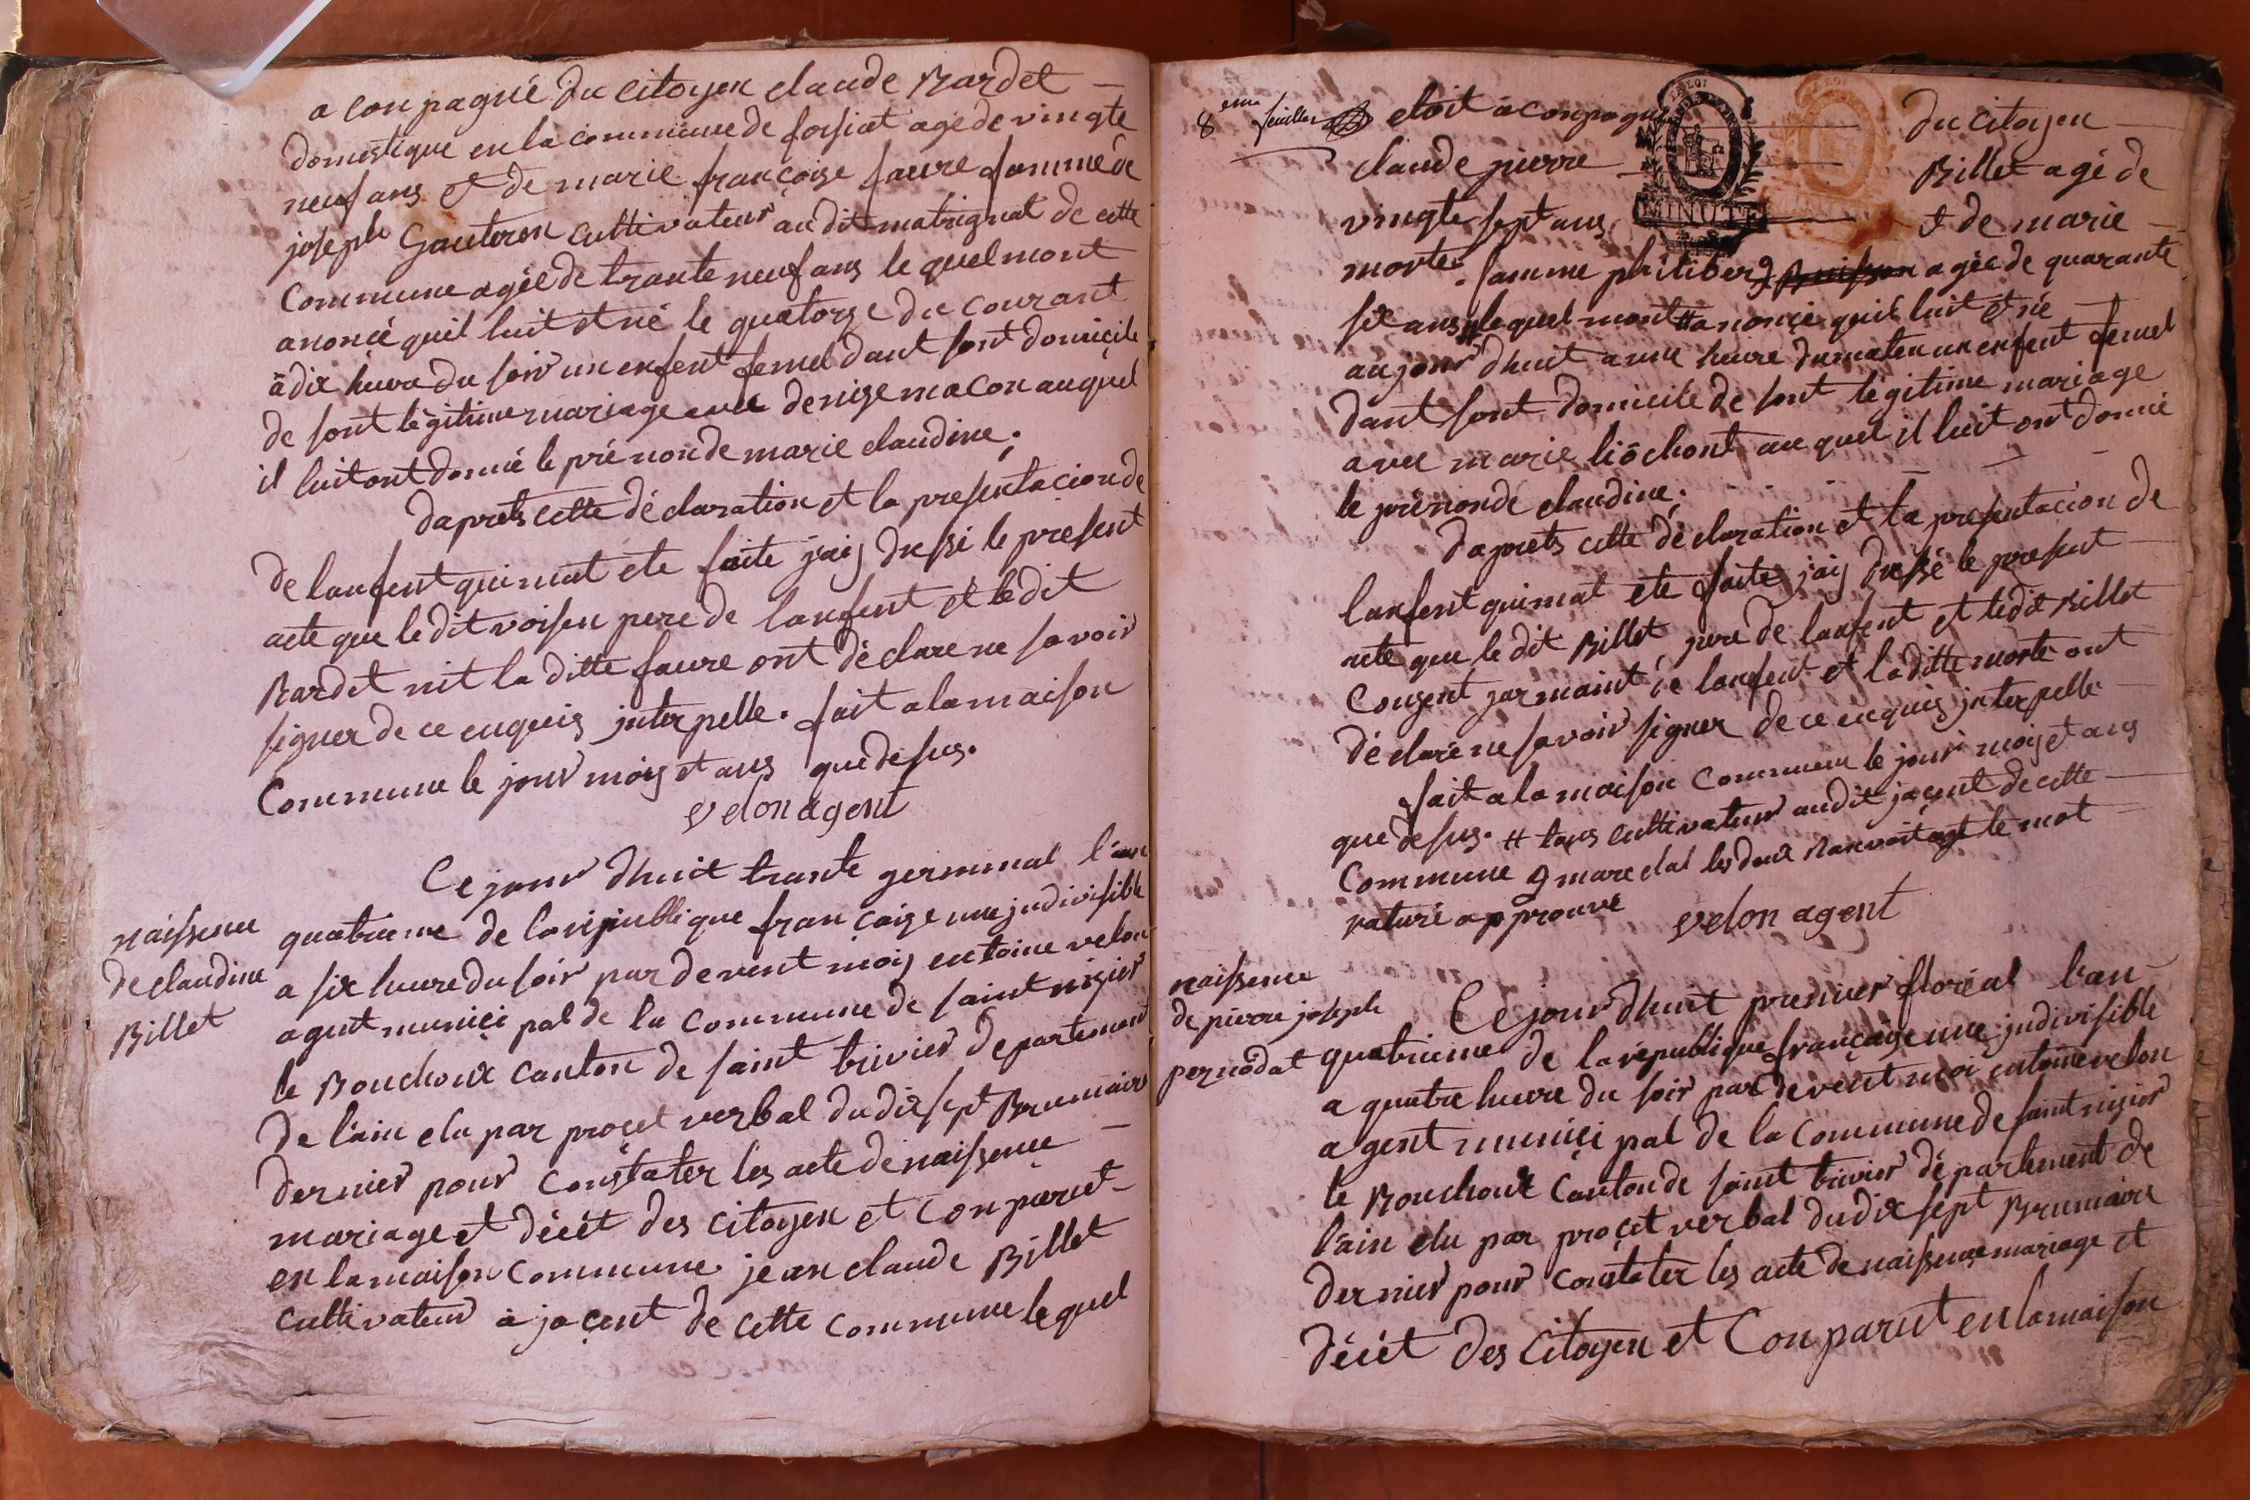 a conpagné du citoyen claude Bardet
domestique en la commune de foisiat agé de vingte
neuf ans et de marie françoize faure famme de
joseph Gauteron cultivateur au dit matrignat de cette
Commune agée de trante neuf ans le quel mont
anoncé quil luit et né le quatorze du courant
à dix heure du soir un enfent femel dant sont domicile
de sont légitime mariage avec denize macon auquel
il luit ont donné le pré non de marie claudine.
daprets cette déclaration et la presentacion de
de lanfent qui mat ete faite jaij dressé le présent
acte que le dit voisen pere de lanfent et le dit
Bardet nit la ditte faure ont déclare ne savoir
signer de ce enquis jnterpelle. fait a la maison
Commune le jour mois et ans que desus.
velon agent
Ce jour dhuit trante germinal l'an
quatrieme de la république françaize une jndivisible
a six heure du soir par devent moij entoine velon
agent muniçi pal de la commune de saint nizier
le Bouchoux canton de saint trivier departement
De l'ain elu par proçet verbal du dix sept Brumaire
dernier pour constater les acte de naissence
mariage et décét des citoyen et conparut
en la maison commune jean claude Billet
cultivateur à jaçent de cette commune le quel
naissence
de claudine
Billet
8eme feuillet
etoit aconpagné du citoyen
claude pierre Billet agé de
vingte sept ans et de marie
MINUTE
morte famme philiber g agée de quarante
sit ans le quel mont anonçé quil luit et né
aujour dhuit a une heure du maten un enfent femel
dant sont domicile de sont légitime mariage
avec marie liôchont au quel il luit ont donné
le prénon de claudine.
daprets cette déclaration et la presentacion de
lanfent qui mat ete faite jaij dressé le present
acte que le dit Billet pere de lanfent et ledit Billet
Conzent jarmaint de lanfent et la ditte morte ont
déclaré ne savoir signer de ce enquis jnterpelle
fait a la maison commune le jour mois et ans
que desus. # tous cultivateur au dit jaçent de cette
Commune g marechal les deux Ranvoit et le mot
raturé approuvé
velon agent
naissence
de pierre joseph
pernodat
Ce jour dhuit premier floréal l'an
quatrieme de la république françaize une jndivisible
a quatre heure du soir par devent moi entoine velon
agent muniçi pal de la commune de saint nizier
le Bouchoux Canton de saint trivier département de
l'ain elu par proçet verbal du dix sept Brumaire
dernier pour constater les acte de naissence mariage et
décét des citoyen et Conparut en la maison